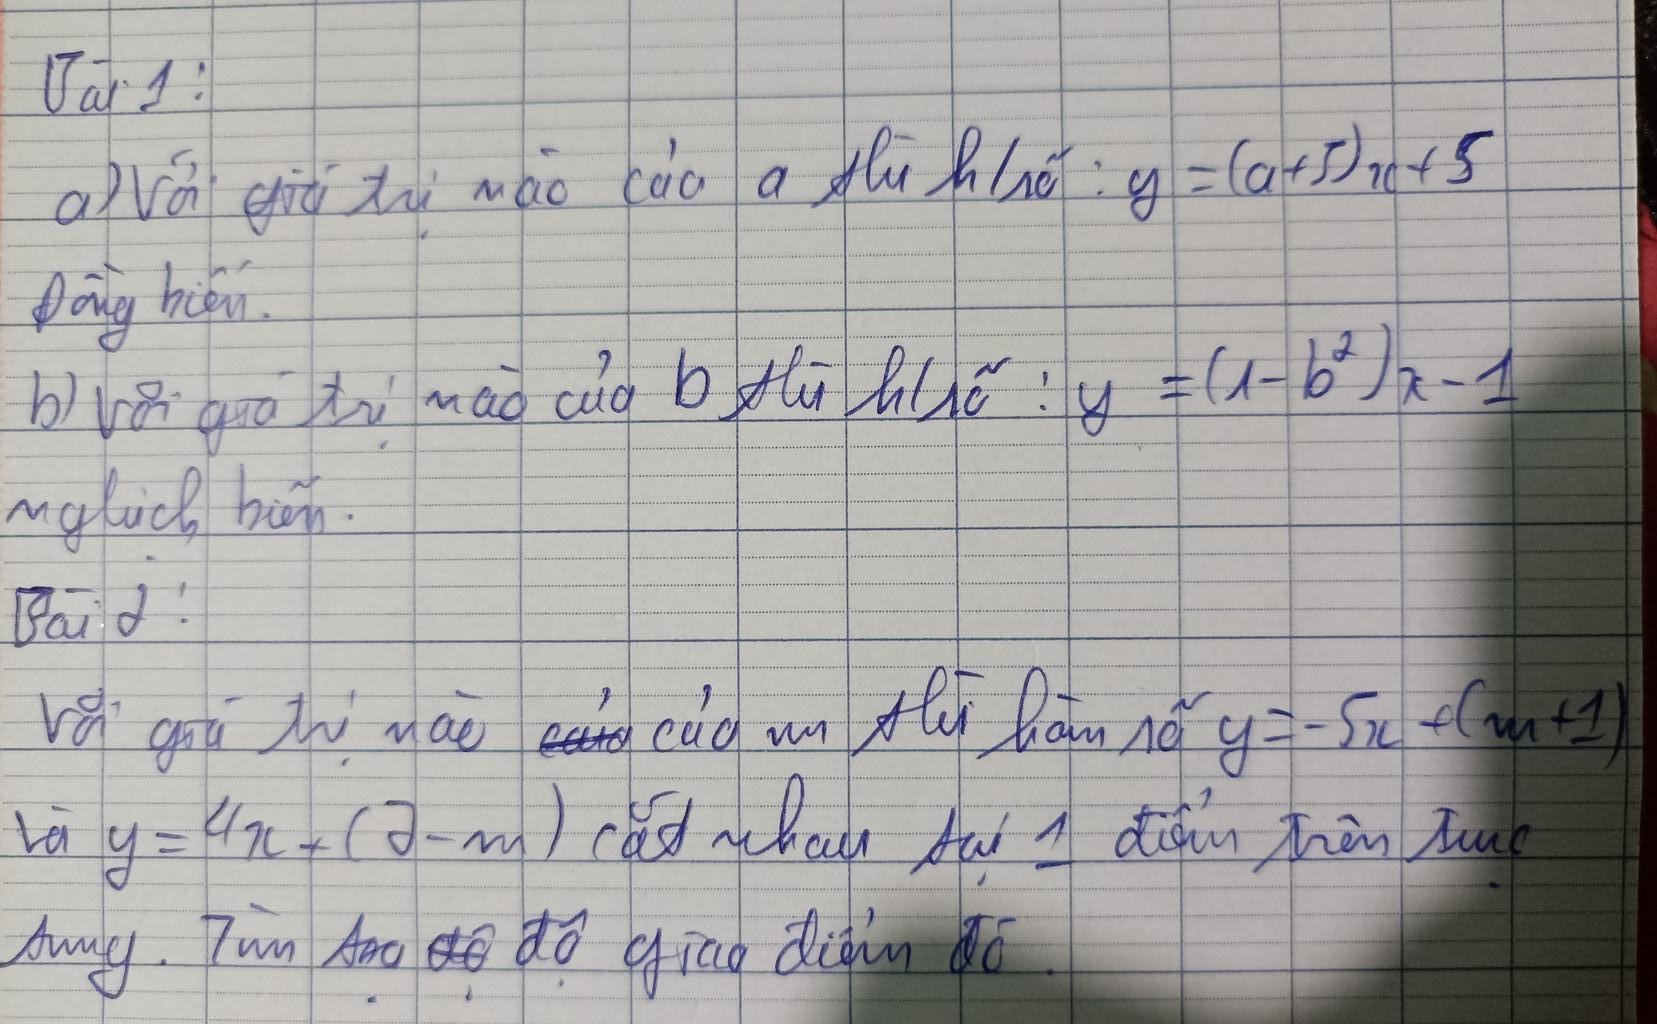 Bài 1:
a) Với giá trị nào của a thì h/số: y = (a+5)x + 5
Đồng biến.
b) Với giá trị nào của b thì h/số: y = (1 - b²)x - 1
nghịch biến.
Bài 2:
Với giá trị nào của m thì hàm số y = -5x + (m+1)
và y = 4x + (2 - m) cắt nhau tại 1 điểm trên trục
tung. Tìm tọa độ giao điểm đó.